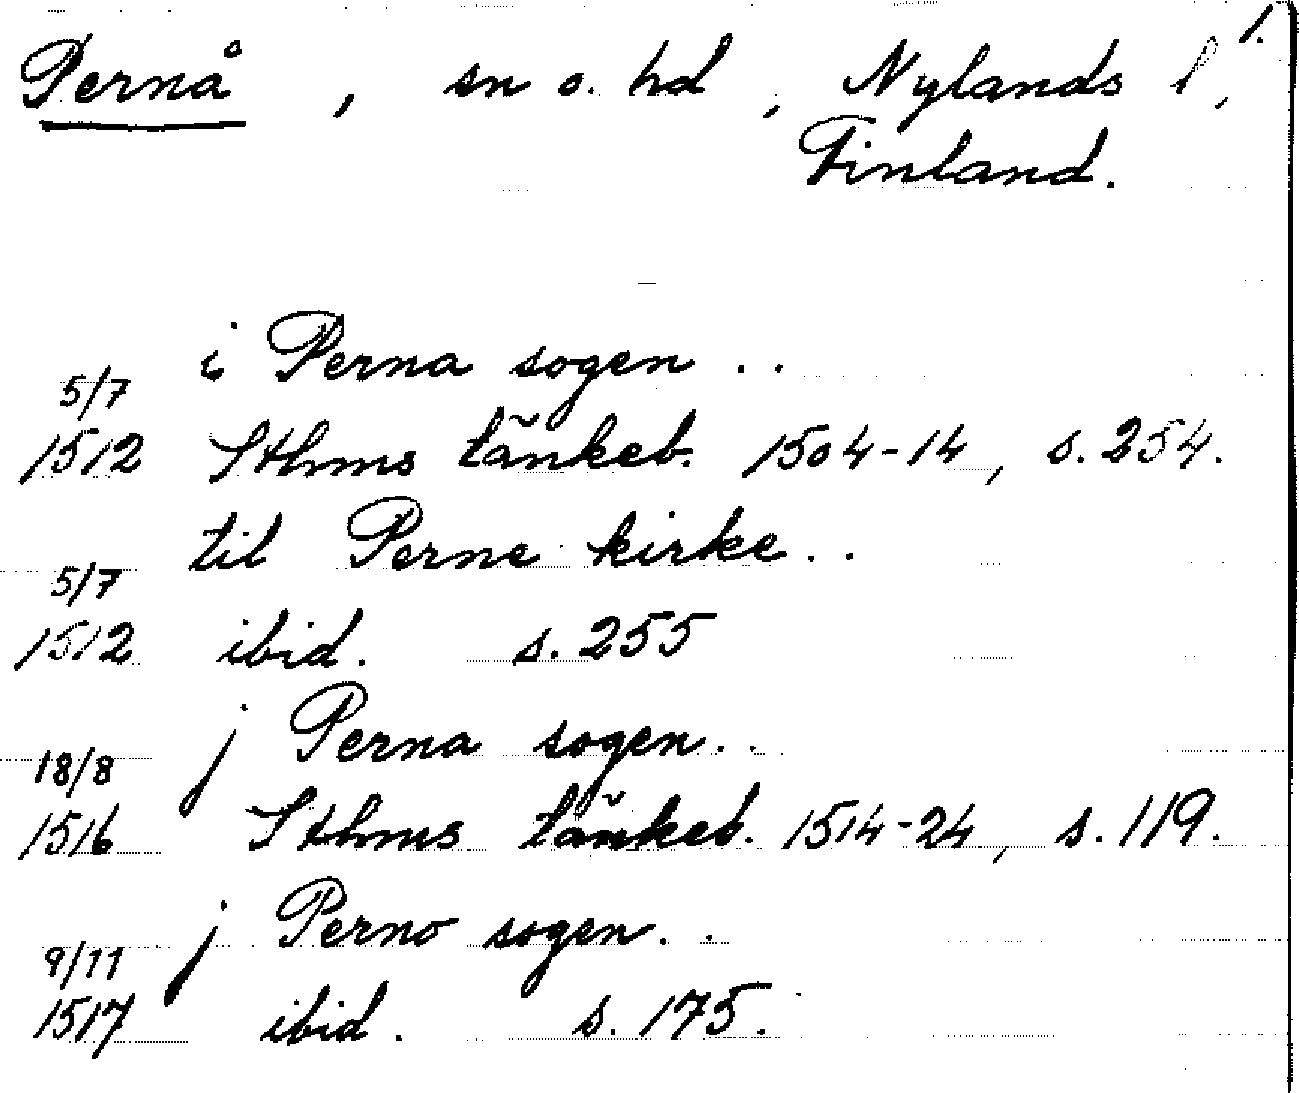 1.
Pernå, sn o. hd, Nylands l,
Finland.
i Perna sogen ..
5/7
1512 Sthms tänkeb. 1504-14, s. 254.
til Perne kirke ..
5/7
1512 ibid. s. 255
j Perna sogen ..
18/8
1516 Sthms tänkeb. 1514-24, s. 119.
j Perno sogen ..
9/11
1517 ibid. s. 175.